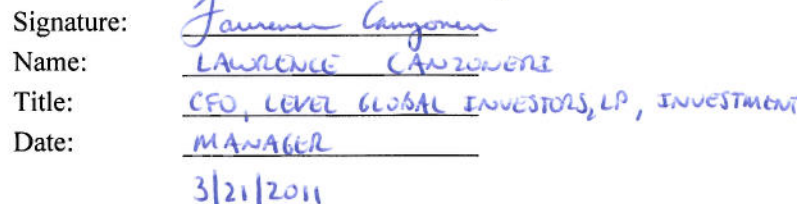 Signature: Lawrence Canzoneri
Name: LAWRENCE CANZONERI
Title: CFO, LEVEL GLOBAL INVESTORS, LP, INVESTMENT
Date: MANAGER
3/21/2011